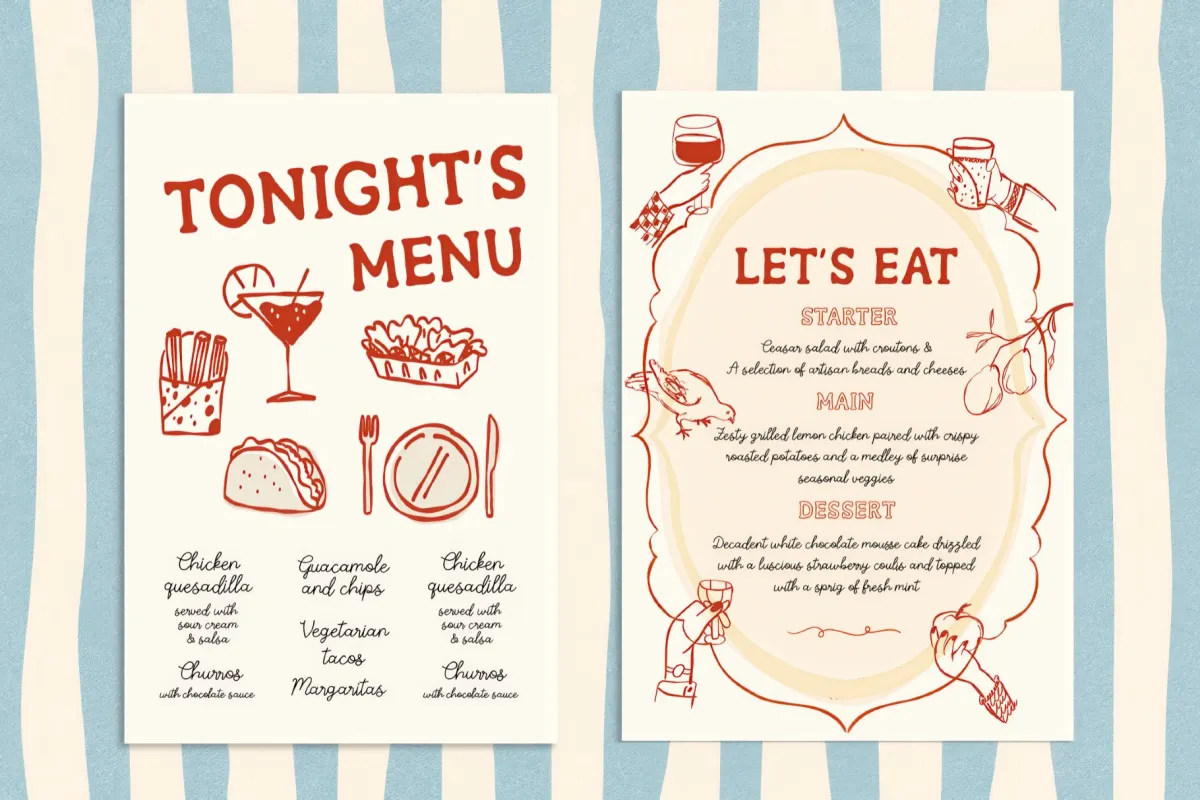 TONIGHT'S
MENU
Chicken
quesadilla
served with
sour cream
& salsa
Churros
with chocolate sauce
Guacamole
and chips
Vegetarian
tacos
Margaritas
Chicken
quesadilla
served with
sour cream
& salsa
Churros
with chocolate sauce
LET'S EAT
STARTER
Ceasar salad with croutons &
A selection of artisan breads and cheeses
MAIN
Zesty grilled lemon chicken paired with crispy
roasted potatoes and a medley of surprise
seasonal veggies
DESSERT
Decadent white chocolate mousse cake drizzled
with a luscious strawberry coulis and topped
with a sprig of fresh mint